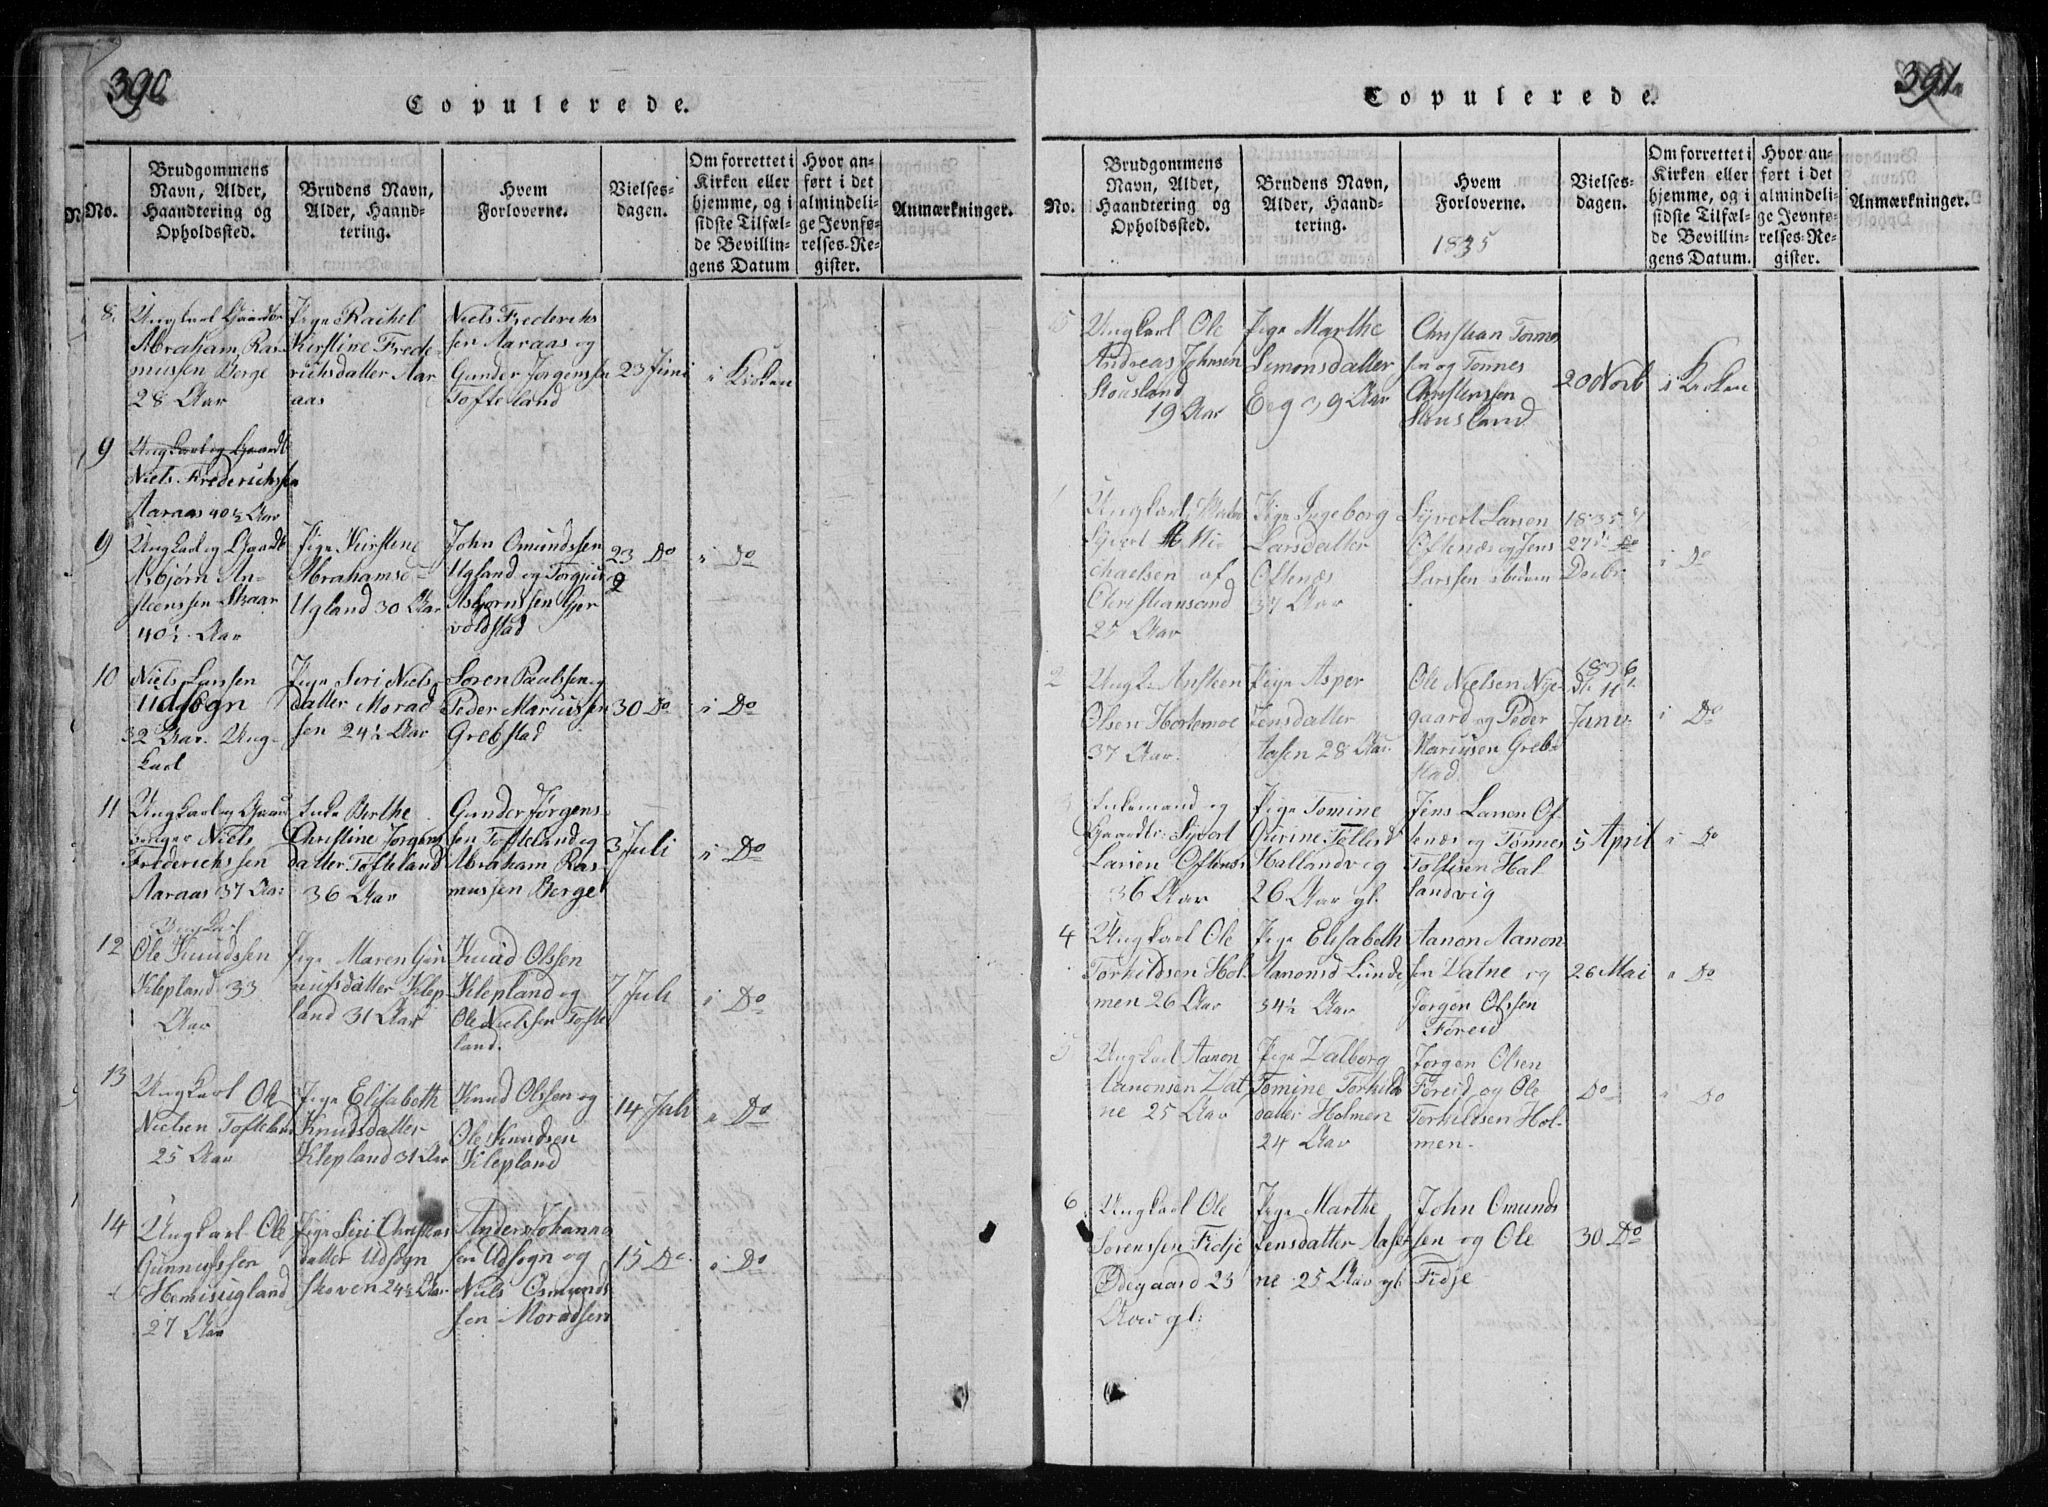 390
Copulerede.
No.
Brudgommens
Navn, Alder,
Haandtering og
Opholdssted.
Brudens Navn,
Alder, Haand-
tering.
Hvem
Forloverne.
Vielses-
dagen.
Om forrettet i
Kirken eller
hjemme, og i
sidste Tilfæl-
de Bevillin-
gens Datum
Hvor an-
ført i det
almindeli-
ge Jevnfø-
relses-Re-
gister.
Anmærkninger.
8.
Ungkarl Gaardbr
Abraham Ras-
mussen Berge
28 Aar
Pige Rachel
Kirstine Frede-
richsdatter Aar
aas
Niels Frederichs
sen Aaraas og
Gunder Jørgensen
Tofteland
23 Juni
i Kirken
9
Ungkarl og Gaardb
Niels Frederichssen
Aaraas 40½ Aar
9
Ungkarl og Gaardb
Asbjørn An-
steenssen Skaar
40½ Aar
Pige Kirstene
Abrahamsd
Ugland 30 Aar
John Omundssen
Ugland og Torgjus
Asbjørnssen Gjer
voldstad
23 Do
i Do
10
Niels Larssen
Udsøgn
32 Aar. Ung-
karl
Pige Seri Niels
datter Morad
sen 24½ Aar
Søren Paulssen og
Peder Mariussen
Grebstad
30 Do
i Do
11
Ungkarl og Gaard
bruger Niels
Frederichssen
Aaraas 37 Aar
Enke Berthe
Christine Jørgens
datter Tofteland
36 Aar
Gunder Jørgens-
sen Tofteland og
Abraham Ras
mussen Berge
3 Juli
i Do
12
Ungkarl
Ole Knudssen
Klepland 33
Aar
Pige Maren Gun
nufsdatter Klep
land 31 Aar
Knud Olssen
Klepland og
Ole Nielssen Tofte
land.
7 Juli
i Do
13
Ungkarl Ole
Nielsen Tofteland
25 Aar
Pige Elisabeth
Knudsdatter
Klepland 31 Aar
Knud Olssen og
Ole Knudsen
Klepland
14 Juli
i Do
14
Ungkarl Ole
Gunnufssen
Hemisugland
27 Aar
Pige Siri Christens
datter Udsøgn
skoven 24½ Aar
Anders Johanne
sen Udsøgn og
Niels Osmunds
sen Moradsen
15 Do
i Do
391.
Copulerede.
No.
Brudgommens
Navn, Alder,
Haandtering og
Opholdssted.
Brudens Navn,
Alder, Haand-
tering.
Hvem
Forloverne.
1835
Vielses-
dagen.
Om forrettet i
Kirken eller
hjemme, og i
sidste Tilfæl-
de Bevillin-
gens Datum.
Hvor an-
ført i det
almindeli-
ge Jevnfø-
relses-Re-
gister.
Anmærkninger.
15
Ungkarl Ole
Andreas Johnsen
Stousland
19 Aar
Pige Marthe
Simonsdatter
Eeg 39 Aar
Christian Tønnes
sen og Tønnes
Christenssen
Stousland
20 Novb
i Kirken
1
Ungkarl,
Syvert Mi-
chaelsen af
Christiansand
25 Aar
Pige Ingeborg
Larsdatter
Oftenæs
37 Aar
Syvert Larsen
Oftenæs og Jens
Larssen ibidem
1835
27de
Decbr
i Do
2
Ungk. Ansteen
Olsen Hortemoe
37 Aar.
Pige Asper
Jensdatter
Aasen 28 Aar
Ole Nielsen Nye-
gaard og Peder
Mariusen Greb-
stad.
1836
D. 11t.
Janu.
i Do
3
Enkemand og
Gaardbr: Syvert
Larsen Oftenæs
36 Aar
Pige Tomine
Gurine Tollest
Hallandvig
26 Aar gl.
Jens Larsen Of-
tenæs og Tønnes
Tollisen Hal-
landvig
5 April
i Do
4
Ungkarl Ole
Torkildsen Hol-
men 26 Aar
Pige Elisabeth
Aanonsd Lunde
34½ Aar
Aanon Aanon
sen Vatne og
Jørgen Olssen
Føreid
26 Mai
i Do
5
Ungkarl Aanon
Aanonsen Vat
ne 25 Aar
Pige Valborg
Tomine Torkild
datter Holmen
24 Aar
Jørgen Olsen
Føreid og Ole
Torkildsen Hol-
men.
Do
i Do
6
Ungkarl Ole
Sørenssen Fidje
Ødegaard 23
Aar gl:
Pige Marthe
Jensdatter Aase
ne 25 Aar gl
John Omunds
sen og Ole
Fidje
30 Do